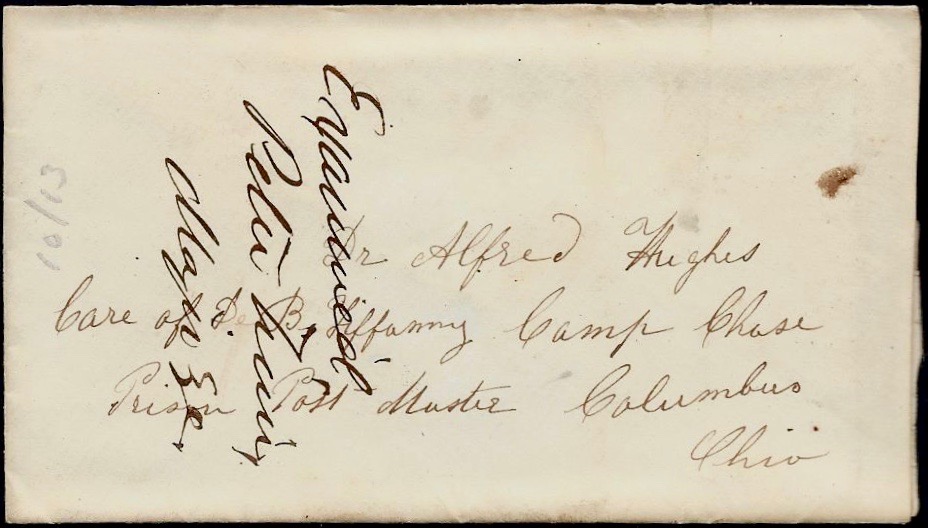 Dr Alfred Hughes
Care of De B, Tiffanny Camp Chase
Prison Post Master Columbus
Ohio
Examined
Peter Zinn
Major &c.
10/13